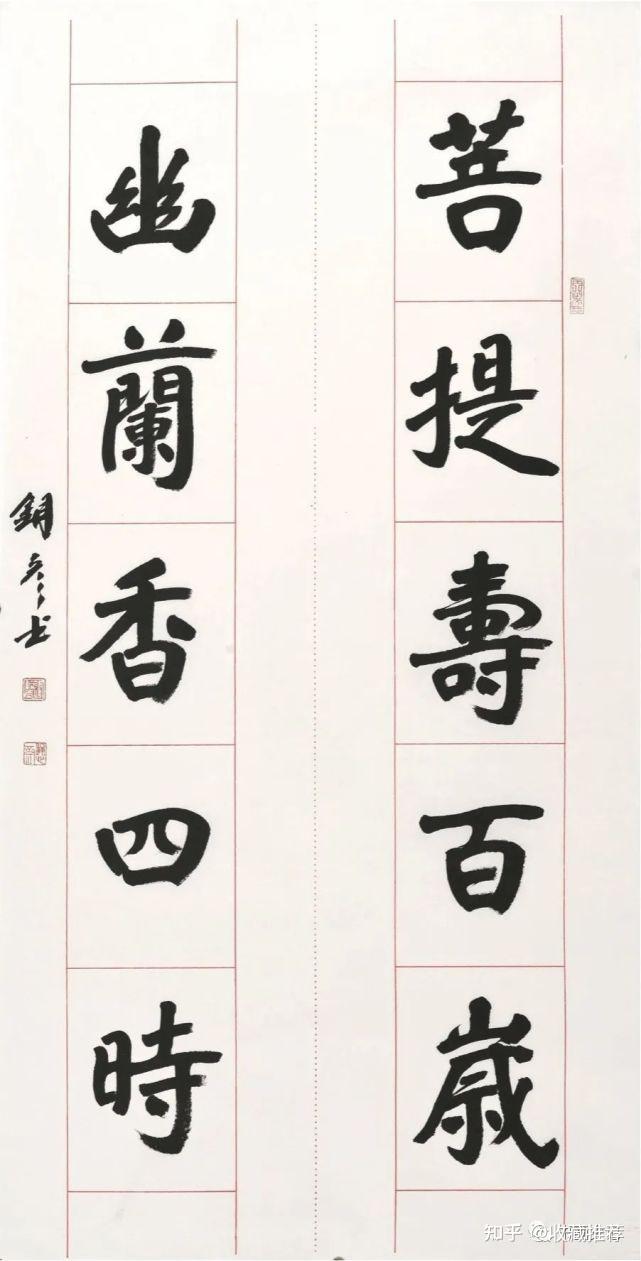 菩提壽百歲
幽蘭香四時
知乎 @收藏推荐